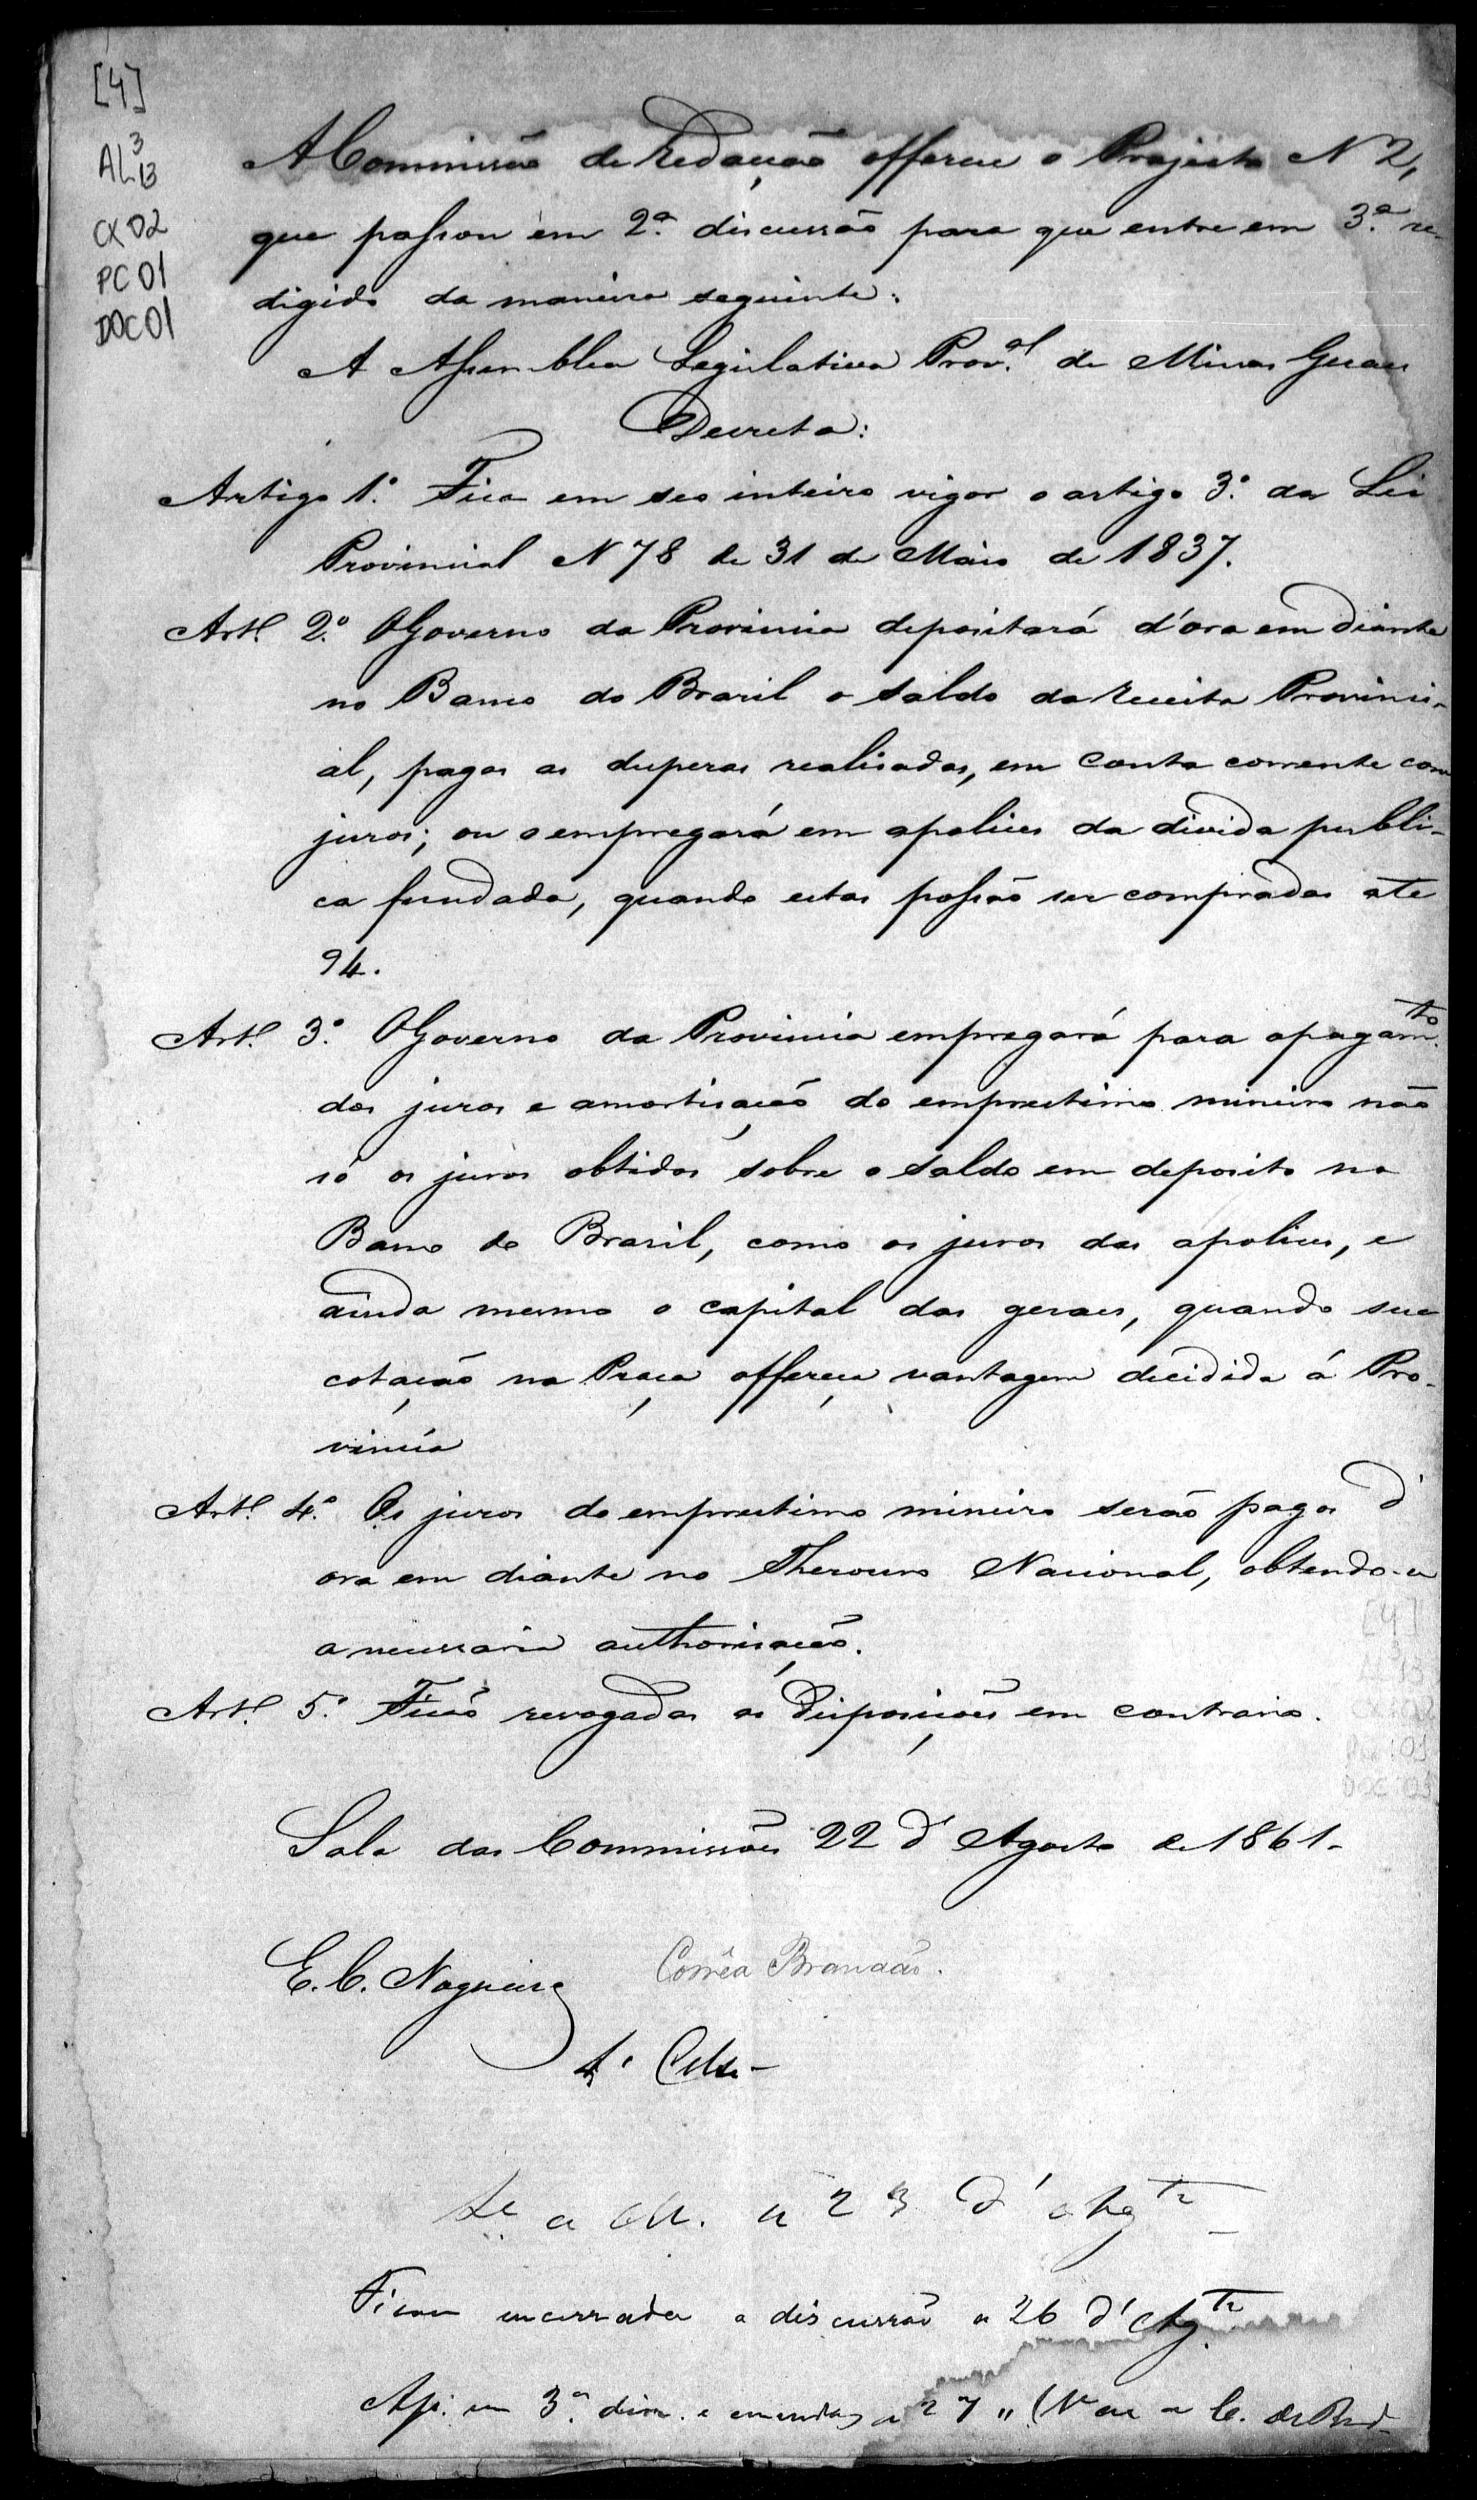 [4]
AL 3
13
CX 02
PC 01
DOC 01
A Commissão de Redacção offerece o Projecto N 2,
que passou em 2.ª discussão para que entre em 3.ª re-
digido da maneira seguinte:
A Assemblea Legislativa Prov.al de Minas Geraes
Decreta:
Artigo 1.º Fica em seo inteiro vigor o artigo 3.º da Lei
Provincial N 78 de 31 de Maio de 1837.
Art. 2.º O Governo da Provincia depositará d'ora em diante
no Banco do Brazil o saldo da receita Provinci-
al, pagas as despezas realisadas, em conta corrente com
juros; ou o empregará em apolices da divida publi-
ca fundada, quando estas possão ser compradas ate
94.
Art. 3.º O Governo da Provincia empregará para o pagam.to
dos juros e amortisação do emprestimo mineiro não
só os juros obtidos sobre o saldo em deposito no
Banco do Brazil, como os juros das apolices, e
ainda mesmo o capital das geraes, quando sua
cotação na Praça offereça vantagem decidida á Pro-
vincia
Art. 4.º Os juros do emprestimo mineiro serão pagos d'
ora em diante no Thesouro Nacional, obtendo-se
a necessaria authorisação.
Art. 5.º Ficão revogadas as disposições em contrario.
Sala das Commissões 22 d'Agosto de 1861-
E. C. Nogueira
Corrêa Brandão.
A. Celso-
a 23 d'Ag.to
Ficou encerrada a discussão a 26 d'Ag.to
Ap. em 3.ª disc. e emendas a 27 "